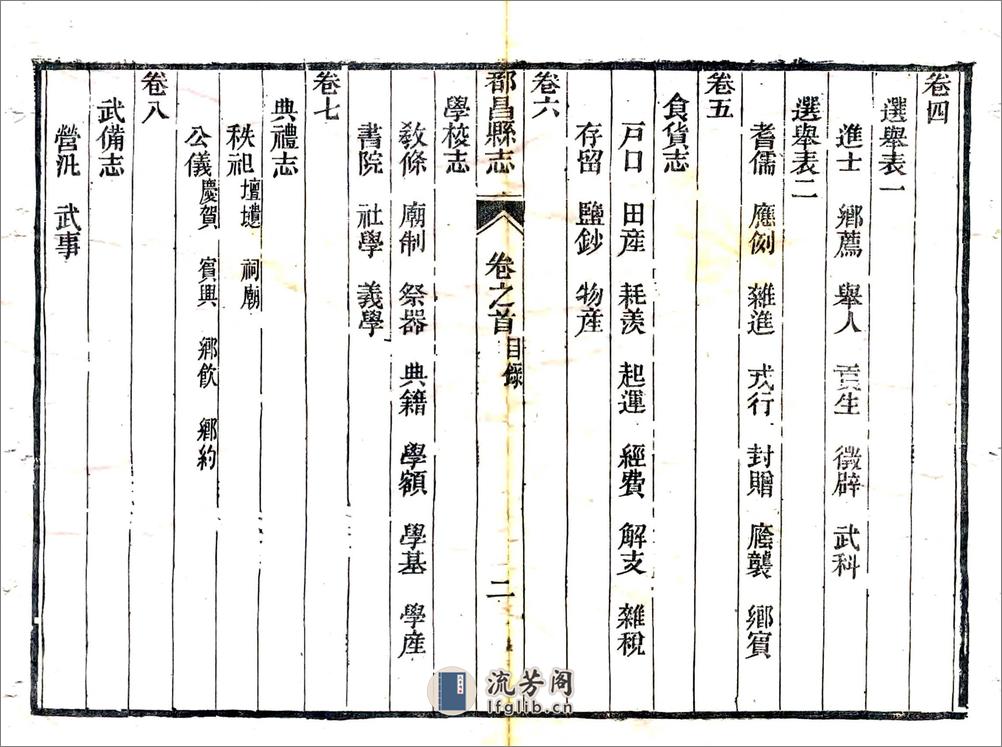 卷四
選舉表一
進士 鄉薦 舉人 貢生 徵辟 武科
選舉表二
耆儒 應例 雜進 戎行 封贈 廕襲 鄉賓
卷五
食貨志
戸口 田産 耗羨 起運 經費 解支 雜稅
存留 鹽鈔 物産
卷六
都昌縣志 卷之首 目錄 二
學校志
敎條 廟制 祭器 典籍 學額 學基 學産
書院 社學 義學
卷七
典禮志
秩祀 壇壝 祠廟
公儀 慶賀 賓興 鄉飲 鄉約
卷八
武備志
營汛 武事
流芳阁
lfglib.cn